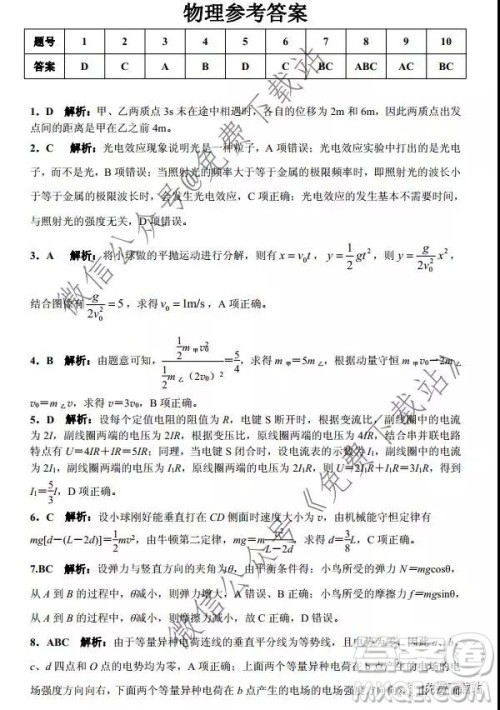 物理参考答案
题号 1 2 3 4 5 6 7 8 9 10
答案 D C A B D C BC ABC AC BC
1. D 解析：甲、乙两质点 3s 末在途中相遇时，各自的位移为 2m 和 6m，因此两质点出发
点间的距离是甲在乙之前 4m。
2. C 解析：光电效应现象说明光是一种粒子，A 项错误；光电效应实验中打出的是光电
子，而不是光，B 项错误；当照射光的频率大于等于金属的极限频率时，即照射光的波长小
于等于金属的极限波长时，会发生光电效应，C 项正确；光电效应的发生基本不需要时间，
与照射光的强度无关，D 项错误。
3. A 解析：将小球做的平抛运动进行分解，则有 x = v₀t，y = 1/2 gt²，则 y = g/2v₀² x²，
结合图像有 g/2v₀² = 5，求得 v₀ = 1m/s，A 项正确。
4. B 解析：由题意可知，½m甲v₀² / ½m乙(2v₀)² = 5/4，求得 m甲=5m乙，根据动量守恒 m甲v₀−2m乙
v₀=m乙v，求得 v=3v₀，B 项正确。
5. D 解析：设每个定值电阻的阻值为 R，电键 S 断开时，根据变流比，副线圈中的电流
为 2I，副线圈两端的电压为 2IR，根据变压比，原线圈两端的电压为 4IR，结合串并联电路
特点有 U=4IR+IR=5IR；同理，当电键 S 闭合后，设电流表的示数为 I₁，副线圈中的电流
为 2I₁，副线圈两端的电压为 I₁R，原线圈两端的电压为 2I₁R，则 U=2I₁R+I₁R=3I₁R，得到
I₁=5/3 I，D 项正确。
6. C 解析：设小球刚好能垂直打在 CD 侧面时速度大小为 v，由机械能守恒定律有
mg[d−(L−2d)]=½mv²，由牛顿第二定律，mg=m v²/L−2d，求得：d=3/8 L，C 项正确。
7.BC 解析：设弹力与竖直方向的夹角为θ，由平衡条件得：小鸟所受的弹力 N＝mgcosθ，
从 A 到 B 的过程中，θ减小，则弹力增大，A 项错误、B 项正确；小鸟所受的摩擦力 f=mgsinθ，
从 A 到 B 的过程中，θ减小，则摩擦力减小，故 C 正确，D 错误。
8. ABC 解析：由于等量异种电荷连线的垂直平分线为等势线，且电势为零，因此 a、b、
c、d 四点和 O 点的电势均为零，A 项正确；上面两个等量异种电荷在 b 点产生的电场的电
场强度方向向右，下面两个等量异种电荷在 b 点产生的电场的电场强度方向
微信公众号@免费下载站
微信公众号《免费下载站》